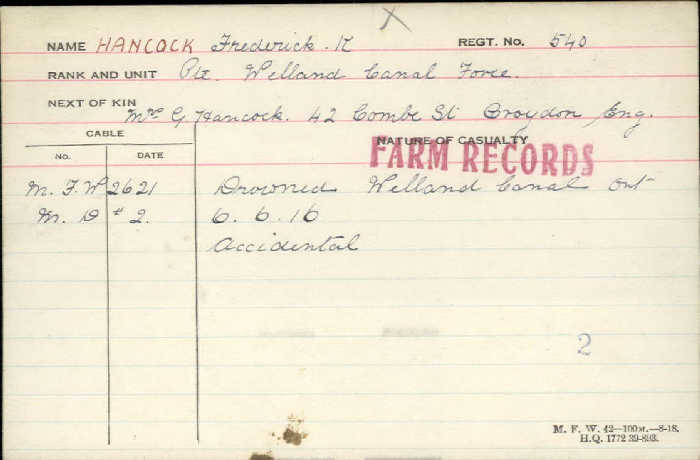 X
NAME HANCOCK Frederick. K REGT. No. 540
RANK AND UNIT Pte. Welland Canal Force.
NEXT OF KIN Mrs G. Hancock. 42 Combe St Croydon, Eng.
CABLE NATURE OF CASUALTY
No. DATE FARM RECORDS
M. F. W 2621 Drowned Welland Canal Ont
M. D # 2. 6. 6. 16
Accidental
2
M. F. W. 42—100M.—8-18.
H.Q. 1772 39-893.